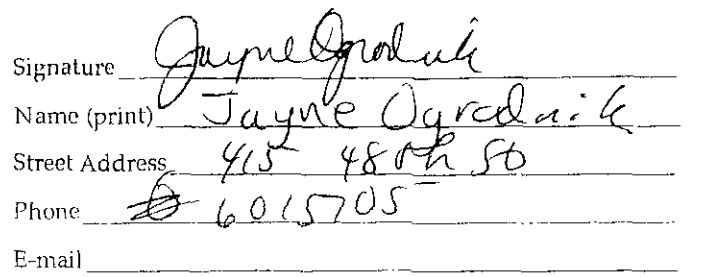 Signature Jayne Ogrodnik
Name (print) Jayne Ogrodnik
Street Address 415 48th St
Phone 6015705
E-mail